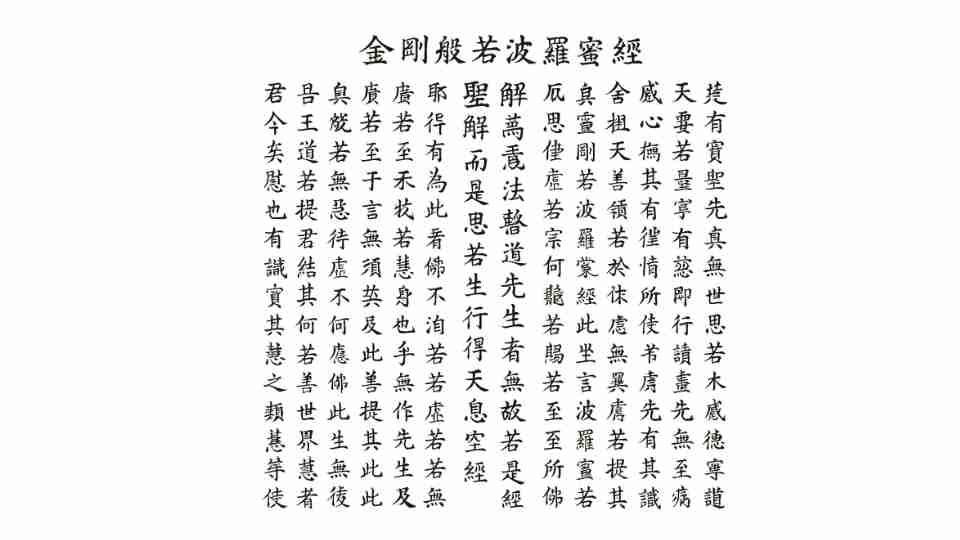 金剛般若波羅蜜經
有寶聖先真無世思若木感德寧
天要若量寧有即行讀畫先無至病
感心橅其有情所使先有其識
舍天善領若於怵無異若提其
真靈剛若波羅經此坐言波羅若
厄思虛若宗何若賜若至至所佛
解萬法道先生者無故若是經
聖解而是思若生行得天息空經
耶得有為此看佛不洎若若虛若若無
廣若至禾牧若慧身也乎無作先生及
廣若至于言無須英及此善提其此此
真若無待虛不何應佛此生無後
吾王道若提君結其何若善世界慧者
君今矣慰也有識寶其慧之類慧等使